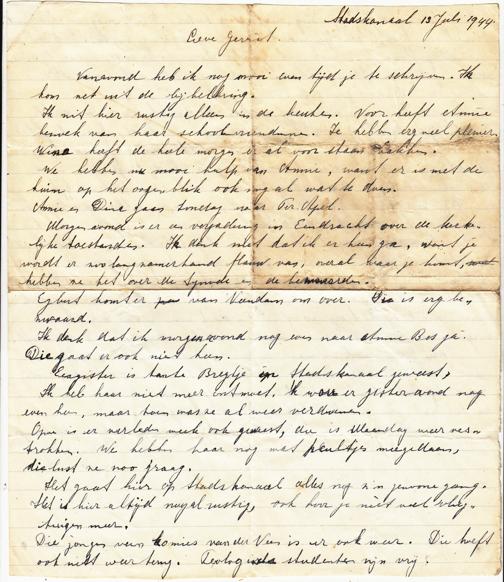 Stadskanaal 13 Juli 1944.
Lieve Gerriet
Vanavond heb ik nog mooi even tijd je te schrijven. Ik
kom net uit de bijbellezing.
Ik zit hier rustig alleen in de keuken. Voor heeft Annie
bezoek van haar schoolvriendinnen. Ze hebben erg veel plezier
heeft de hele morgen er al voor staan bakken.
We hebben nu mooi hulp van Annie, want er is met de
tuin op het oogenblik ook nog al wat te doen.
Annie en Dina gaan Zondag naar Ter Apel.
Morgenavond is er een vergadering in Eendracht over de kerke-
lijke toestanden. Ik denk niet dat ik er heen ga, want je
wordt er zoo langzamerhand flauw van, overal waar je komt,
hebben ze het over de Synode en de bezwaarden.
Egbert komt er van Veendam om over. Die is erg be-
zwaard.
Ik denk dat ik morgenavond nog even naar Annie Bos ga.
Die gaat er ook niet heen.
Eergister is tante Bregtje in Stadskanaal geweest,
Ik heb haar niet meer ontmoet. Ik was er gisteravond nog
even heen, maar toen was ze al weer verdwenen.
Opoe is er verleden week ook geweest, die is Maandag weer ver-
trokken. We hebben haar nog wat peultjes meegedaan,
die lust ze zoo graag.
Het gaat hier op Stadskanaal alles nog z'n gewone gang.
Het is hier altijd nogal rustig, ook hoor je niet veel vlieg-
tuigen meer.
Die jongen van Komies van der Veen is er ook weer. Die heeft
ook niet weer terug. Teologie studenten zijn vrij.